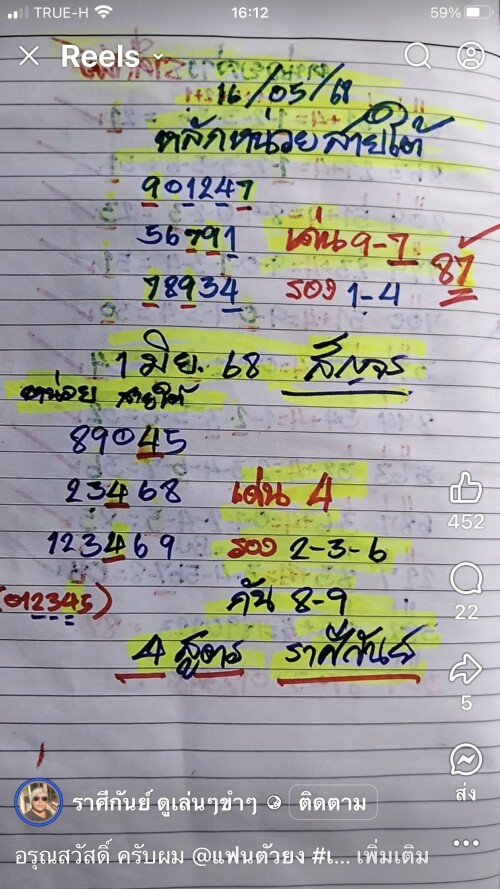 TRUE-H 16:12 59%
Reels
16/05/68
หลักหน่วย สายใต้
901247
56791 เด่น 9-7
87
78934 รอง 1-4
1 มิย. 68 สัญจร
หน่วย สายใต้
89045
23468 เด่น 4
123469 รอง 2-3-6
(012345) กัน 8-9
4 สูตร ราศีกันย์
452
22
5
ส่ง
ราศีกันย์ ดูเล่นๆขำๆ ติดตาม
อรุณสวัสดิ์ ครับผม @แฟนตัวยง #เ... เพิ่มเติม